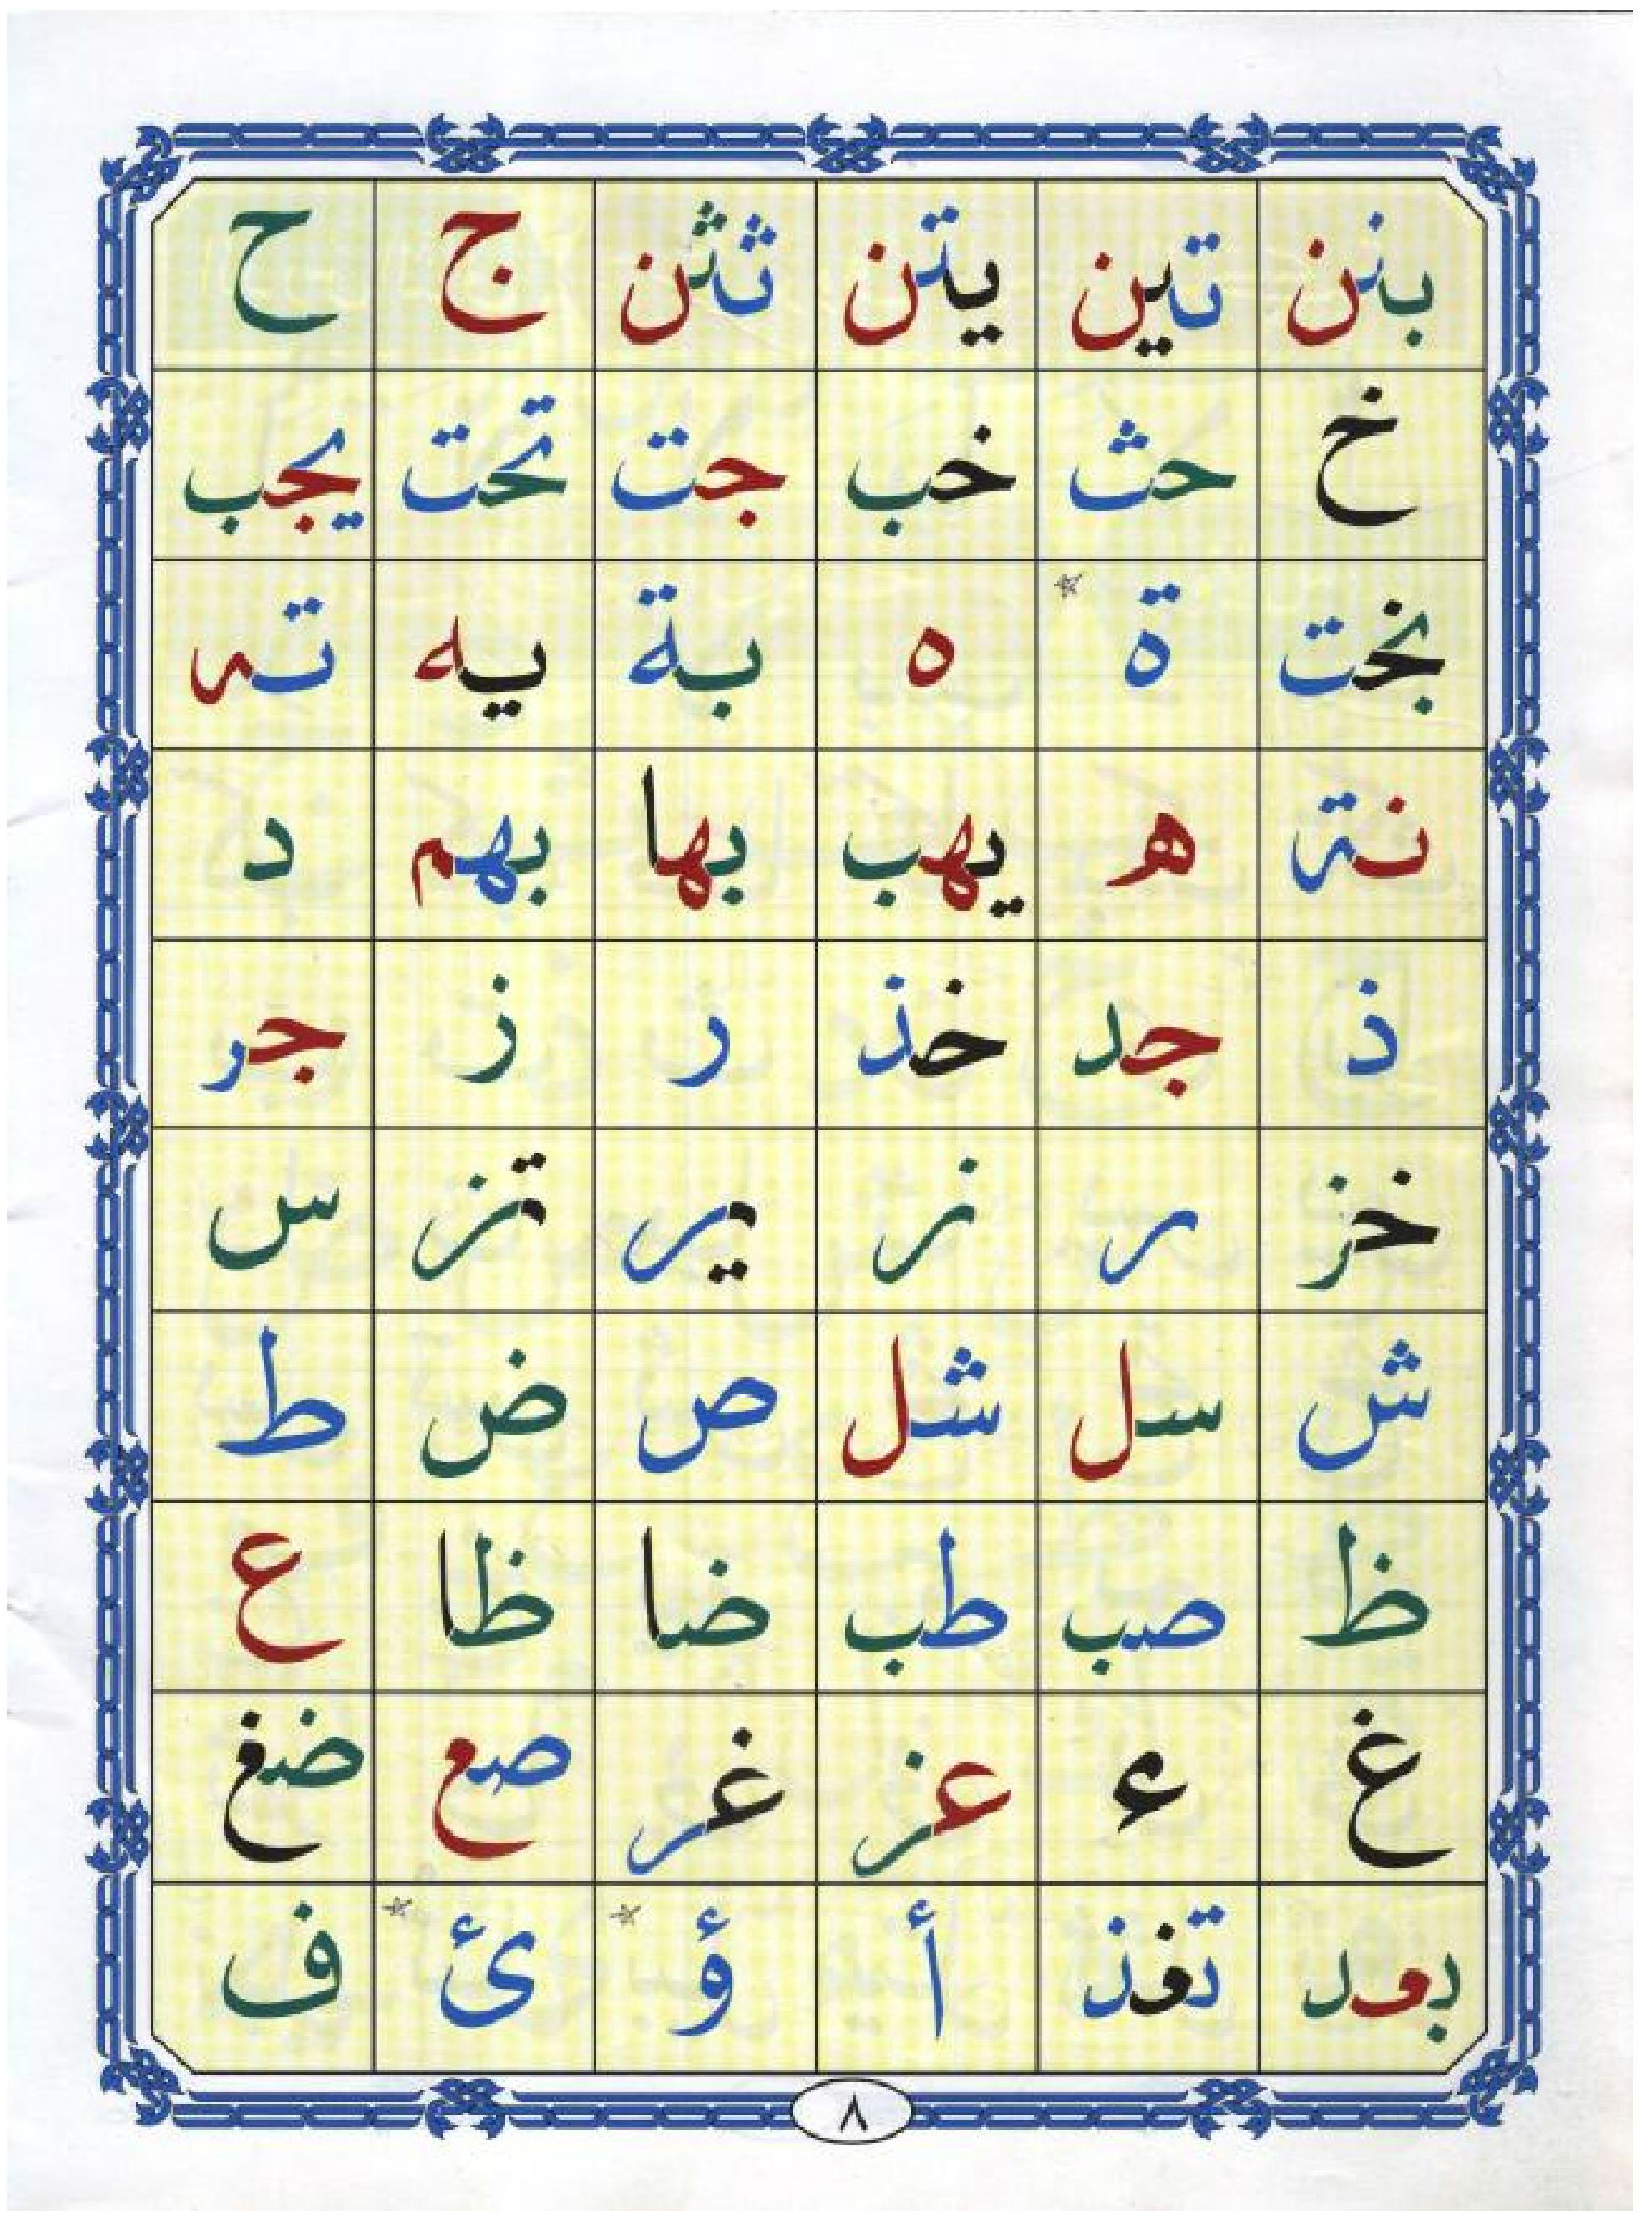 بنن تين يتن ثثن ج ح
خ حث خب جت تحت يجب
بخت ة ه بة يه ته
نة ه يهب بها بهم د
ذ جد خذ ر ز جر
خز ر ز ير تز س
ش سل شل ص ض ط
ظ صب طب ضا ظا ع
غ ء عز غر صع ضغ
بعد تغذ أ ؤ ئ ف
٨